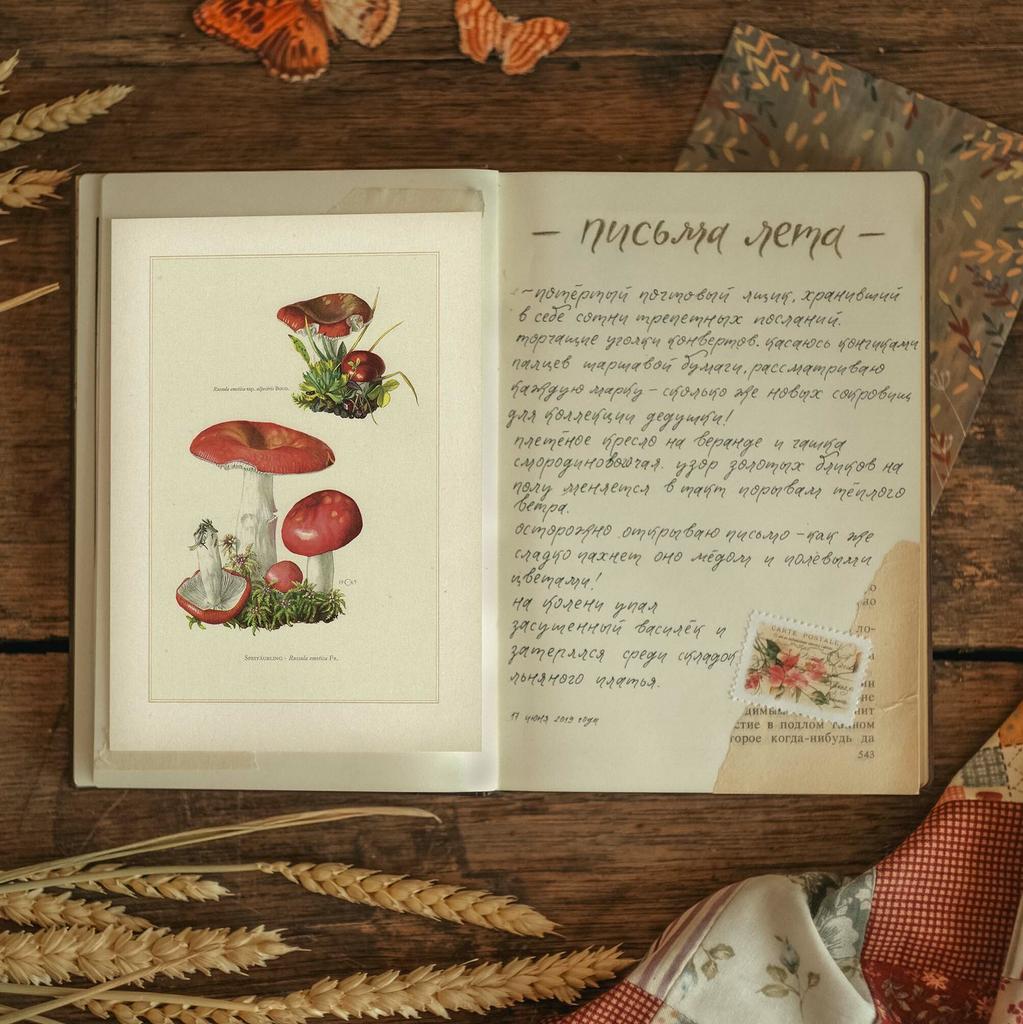 Russula emetica ssp. alpestris Boud.
Speitäubling - Russula emetica Fr.
— письма лета —
- потёртый почтовый ящик, хранивший
в себе сотни трепетных посланий.
торчащие уголки конвертов. касаюсь кончиками
пальцев шаршавой бумаги, рассматриваю
каждую марку - сколько же новых сокровищ
для коллекции дедушки!
плетёное кресло на веранде и чашка
смородиновой чая. узор золотых бликов на
полу меняется в такт порывам тёплого
ветра.
осторожно открываю письмо - как же
сладко пахнет оно мёдом и полевыми
цветами!
на колени упал
засушенный василёк и
затерялся среди складок
льняного платья.
17 июня 2019 года
CARTE POSTALE
стие в подлом
торое когда-нибудь да
543